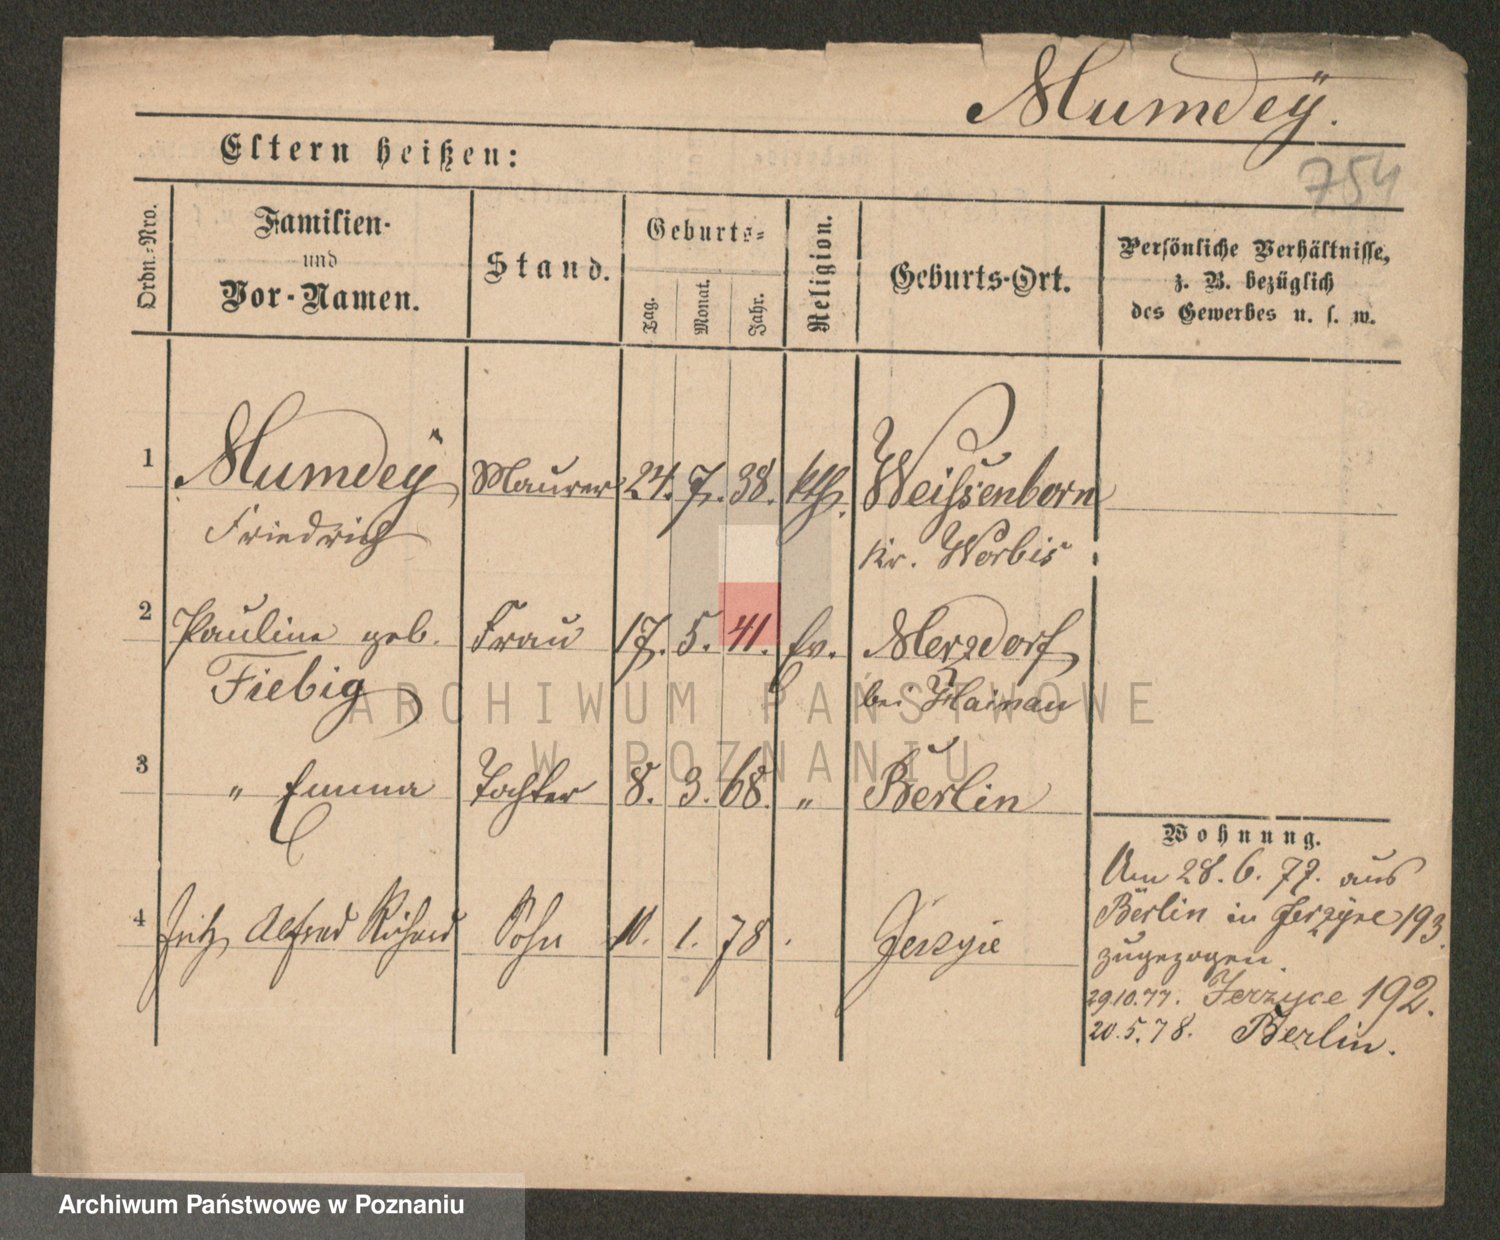 Mumdeÿ.
754
Eltern heißen:
Ordn.-Nro.
Familien-
und
Vor-Namen.
Stand.
Geburts-
Tag.
Monat.
Jahr.
Religion.
Geburts-Ort.
Persönliche Verhältnisse,
z. B. bezüglich
des Gewerbes u. s. w.
1 Mumdeÿ Maurer 24. 7. 38. kth. Weissenborn
Friedrich Kr. Worbis
2 Pauline geb. Frau 17. 5. 41. Ev. Merzdorf
Fiebig bei Hainau
3 " Emma Tochter 8. 3. 68. " Berlin
4 Fritz Alfred Richard Sohn 10. 1. 78 Jerzyie
Wohnung.
Am 28. 6. 77. aus
Berlin in Jerzyce 193.
zugezogen.
29.10.77. Jerzyce 192.
20.5.78. Berlin.
ARCHIWUM PAŃSTWOWE
W POZNANIU
Archiwum Państwowe w Poznaniu